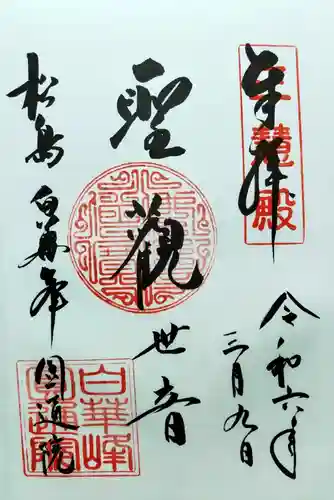 奉拝
令和六年
三月九日
聖観世音
松島 白華峰 圓通院
白華峰